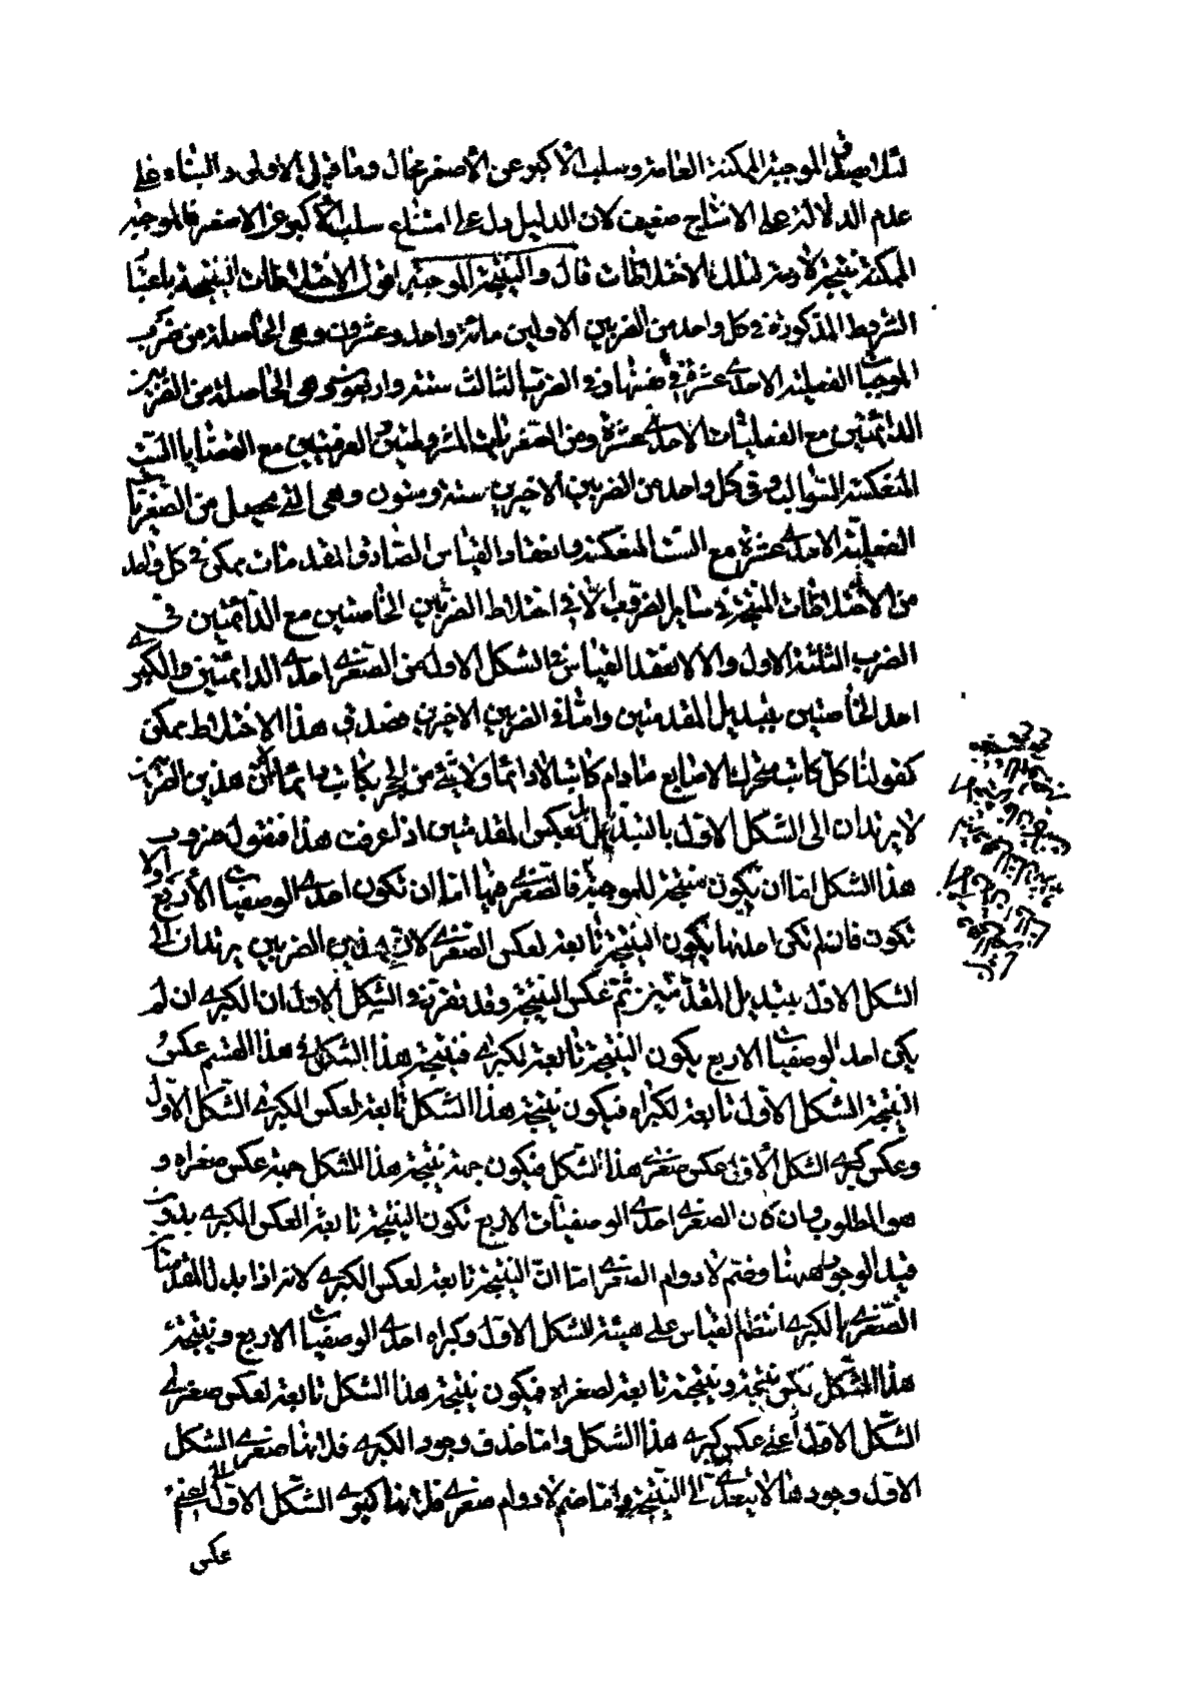 لئلا يصدق الموجبة الممكنة العامة وسلب الأكبر عن الأصغر محال وما قيل الأولى والبناء على
عدم الدلالة على الانتاج ضعيف لان الدليل دل على امتناع سلب الأكبر عن الاصغر فالموجبة
الممكنة نتيجة لازمة لتلك الاختلاطات قال والنتيجة الموجبة اقول الاختلاطات المنتجة باعتبار
الشرائط المذكورة في كل واحد من الضربين الاولين مائة واحد وعشرون وهي الحاصلة من ضرب
الموجبات الفعلية الاحدى عشرة في نفسها وفي الضرب الثالث ستة واربعون وهي الحاصلة من الصغريين
الدائمتين مع الفعليات الاحدى عشرة ومن الصغريات المشروطتين والعرفيتين مع القضايا الست
المنعكسة السوالب وفي كل واحد من الضربين الاخيرين ستة وستون وهي التي يحصل من الصغريات
الفعلية الاحدى عشرة مع الست المنعكسة وانعقاد القياس الصادق المقدمات ممكن في كل واحد
من الاختلاطات المنتجة في سائر الضروب الا في اختلاط الضربين الخاصتين مع الدائمتين في
الضرب الثلثة الاول والا لانعقد القياس في الشكل الاول من الصغرى احدى الدائمتين والكبرى
احد الخاصتين بتبديل المقدمتين واما في الضربين الاخيرين فصدق هذا الاختلاط ممكن
كقولنا كل كاتب متحرك الاصابع مادام كاتبا لا دائما ولا شئ من الحجر بكاتب دائما لأن هذين الضربين
لا يرتدان الى الشكل الاول بالتبديل بل بعكس المقدمتين اذا عرفت هذا فنقول ضروب
هذا الشكل اما ان يكون منتجة للموجبة فالصغرى فيها اما ان تكون احدى الوصفيات الأربع أولا
تكون فان لم تكن احديها يكون النتيجة تابعة لعكس الصغرى لان هذين الضربين يرتدان الى
الشكل الاول بتبديل المقدمتين ثم عكس النتيجة وقد تقرر في الشكل الاول ان الكبرى ان لم
يكن احد الوصفيات الاربع يكون النتيجة تابعة لكبراه فنتيجة هذا الشكل في هذا القسم عكس
النتيجة الشكل الاول تابعة لكبراه فيكون نتيجة هذا الشكل تابعة لعكس الكبرى الشكل الاول
وعكس كبرى الشكل الاول عكس صغرى هذا الشكل فيكون جهة نتيجة هذا الشكل جهة عكس صغراه و
هو المطلوب وان كان الصغرى احدى الوصفيات الاربع تكون النتيجة تابعة لعكس الكبرى بدون
قيد الوجود ههنا وضم لا دوام الصغرى اما ان النتيجة تابعة لعكس الكبرى لانا اذا بدلنا المقدمتان
الصغرى بالكبرى انتظم القياس على هيئة الشكل الاول وكبراه احدى الوصفيات الاربع ونتيجة
هذا الشكل عكس نتيجة ونتيجة تابعة لصغراه فيكون نتيجة هذا الشكل تابعة لعكس صغرى
الشكل الاول أعني عكس كبرى هذا الشكل واما حذف وجود الكبرى فلانها صغرى الشكل
الاول وجودها لا يتعدى الى النتيجة واما ضم لا دوام صغرى فلانها كبرى الشكل الاول اعني
عكس